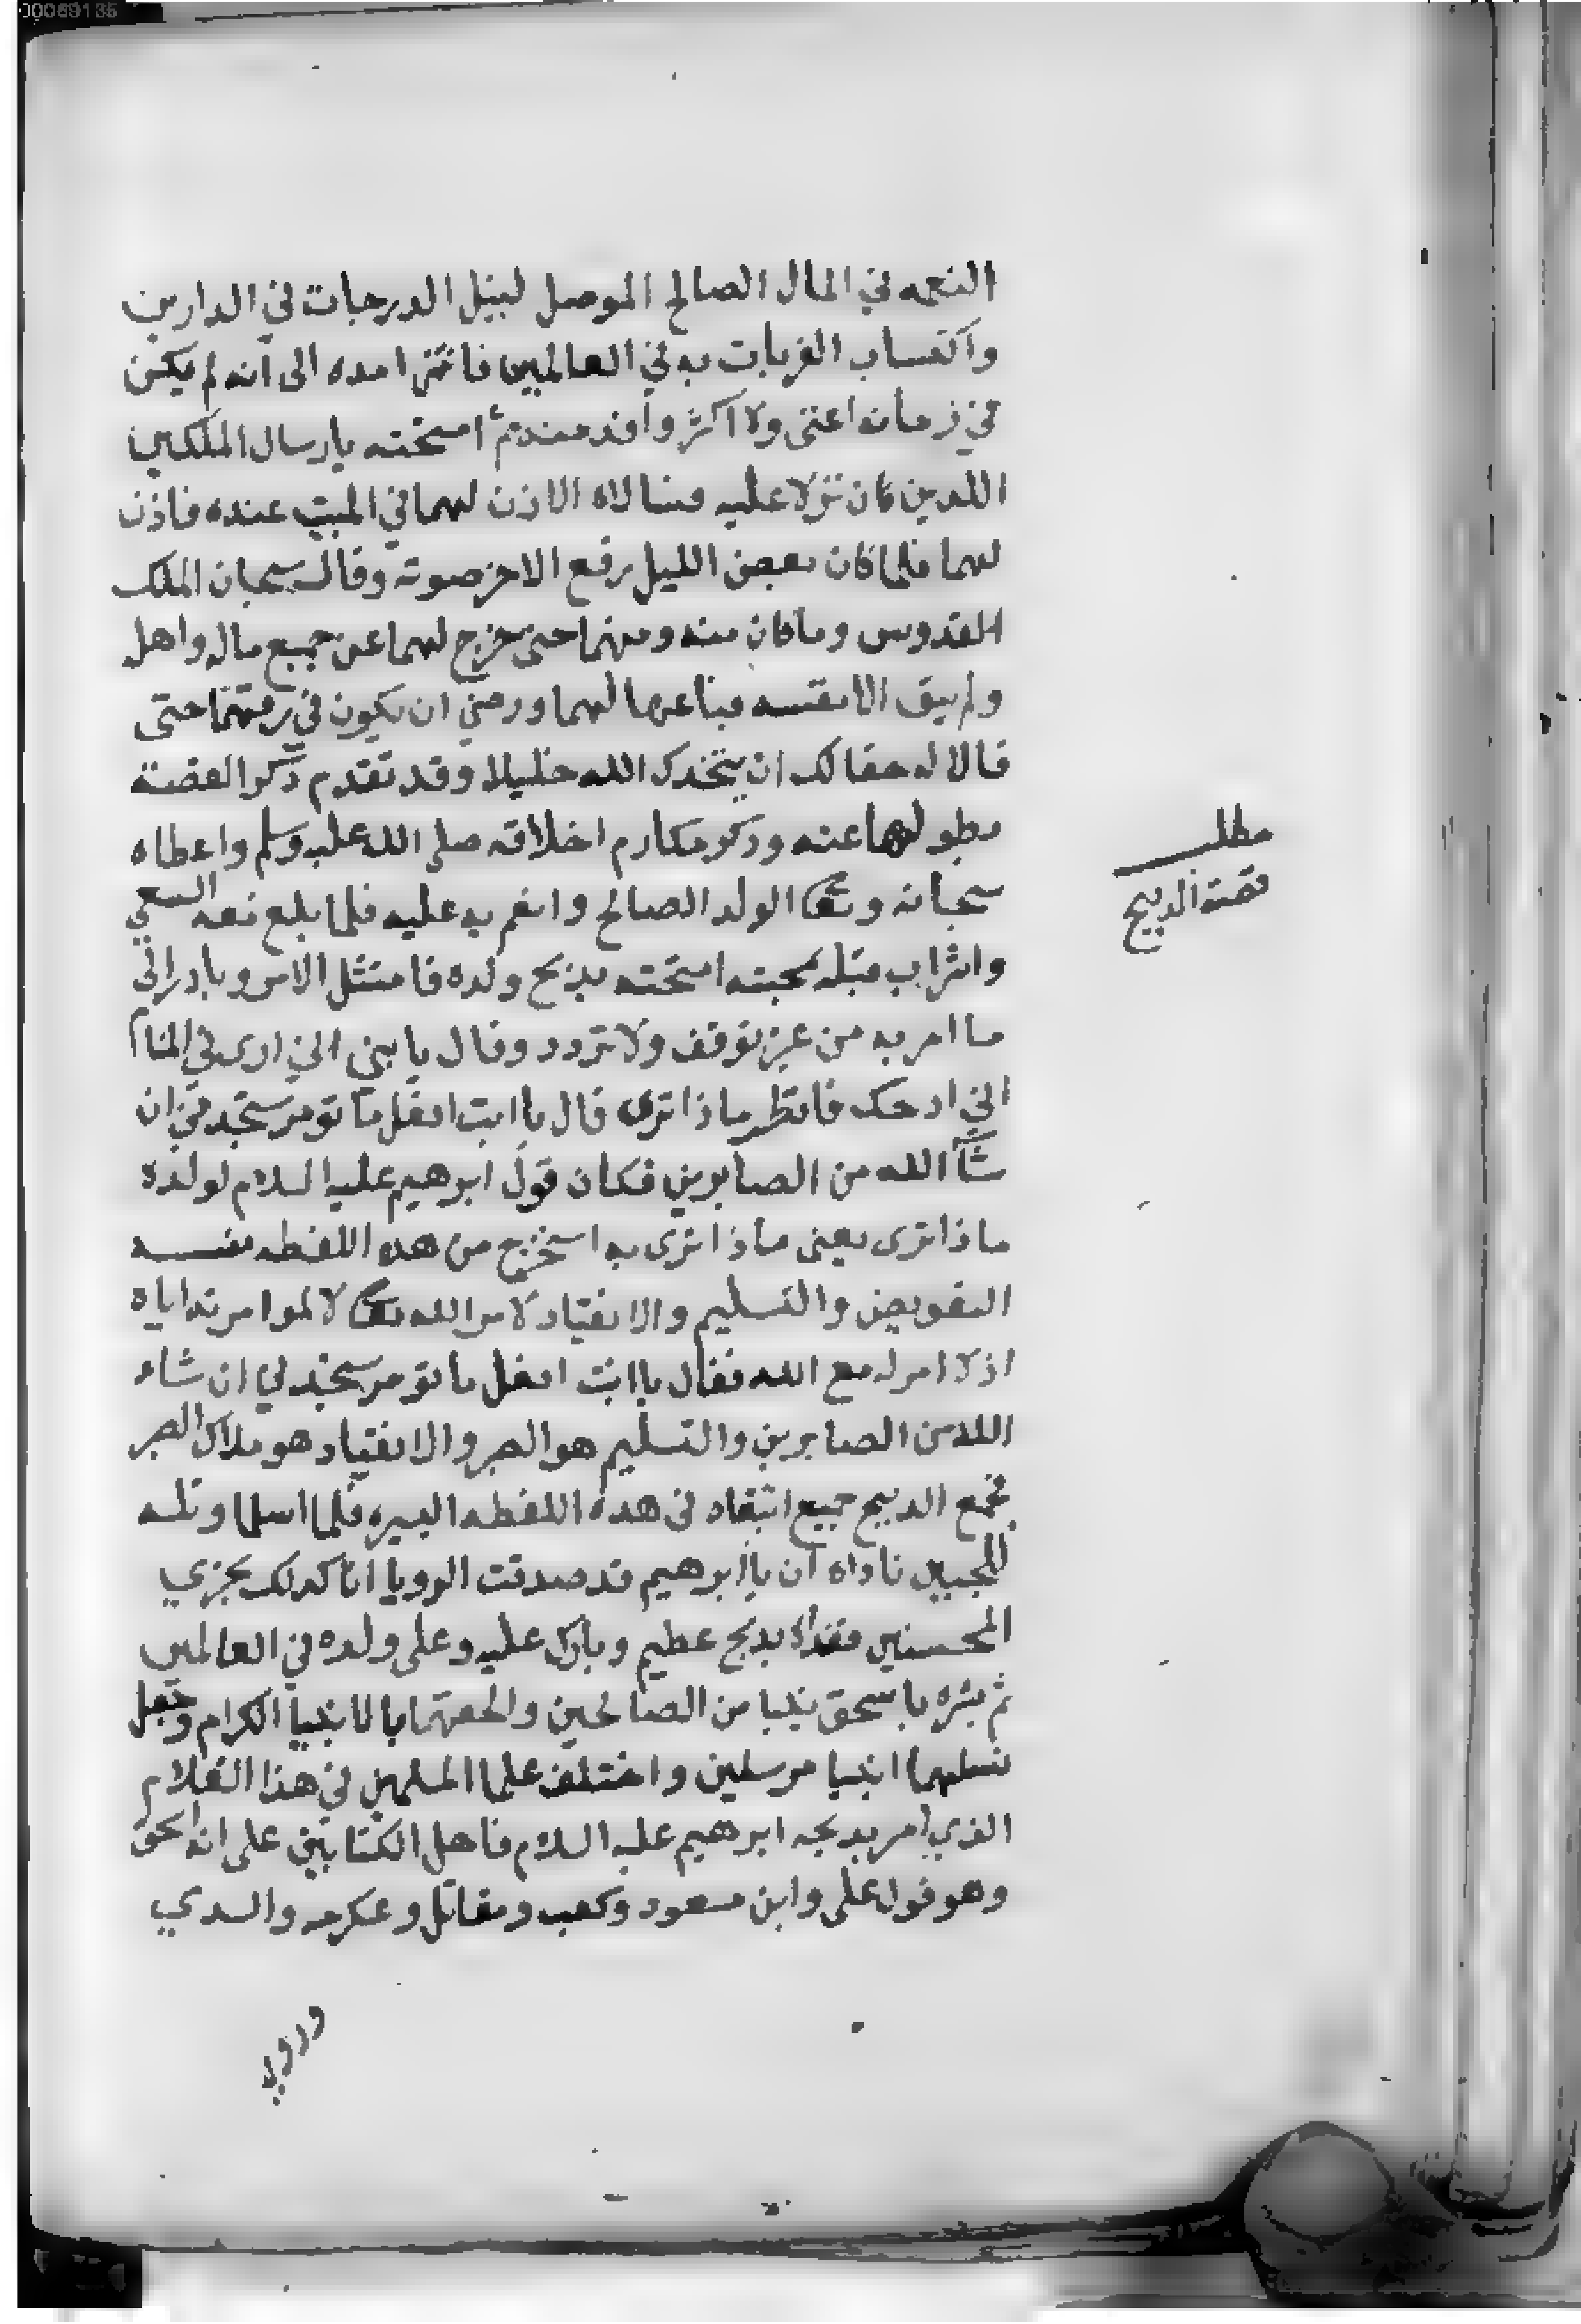 النعمه في المال الصالح الموصل لنيل الدرجات في الدارين
واكتساب القربات به في العالمين فانتهى امده الى انه لم يكن
في زمانه اغنى ولا اكثر وافد منه ثم امتحنه بارسال الملكين
اللدين كان نزلا عليه فسالاه الاذن لهما في المبيت عنده فاذن
لهما فلما كان بعض الليل رفع الاخر صوته وقال سبحان الملك
القدوس وما كان منه ومنهما حتى خرج لهما عن جميع ماله واهله
ولم يبق الا نفسه فباعها لهما ورضي ان يكون في رقهما حتى
قالا له حقا لك ان يتخدك الله خليلا وقد تقدم ذكر القصة
بطولها عنه وذكر مكارم اخلاقه صلى الله عليه وسلم واعطاه
سبحانه وتعا الولد الصالح وانعم به عليه فلما بلغ معه السعي
واشراب قبله محبته امتحنه بذبح ولده فامتثل الامر وبادر الى
ما امر به من غير توقف ولا تردد وقال يا بني اني ارى في المنام
اني ادبحك فانظر ماذا ترى قال يا ابت افعل ما تومر ستجدني ان
شآ الله من الصابرين فكان قول ابرهيم عليه السلام لولده
ماذا ترى يعنى ماذا ترى به استخرج من هذه اللفظه نفسه
التفويض والتسليم والانقياد لامر الله تعا لا لموامرته اياه
اذ لا امر له مع الله فقال يا ابت افعل ما تومر ستجدني ان شاء
الله من الصابرين والتسليم هو الصبر والانقياد هو ملاك الصبر
فجمع الدبيح جميع انتقاه في هده اللفظه اليسيره فلما اسلما وتله
للجبين ناداه ان يا ابرهيم قد صدقت الرويا انا كدلك نجزي
المحسنين ففداه بدبح عظيم وبارك عليه وعلى ولده في العالمين
ثم بشره باسحق نبيا من الصالحين والحقهما بالانبيا الكرام وجعل
نسلهما انبيا مرسلين واختلف علما المسلمين في هذا الغلام
الذي امر بدبحه ابرهيم عليه السلام فاهل الكتابين على انه اسحق
وهو قول على وابن مسعود وكعب ومقاتل وعكرمه والسدي
وروي
مطلب
قصة الدبيح
00069135